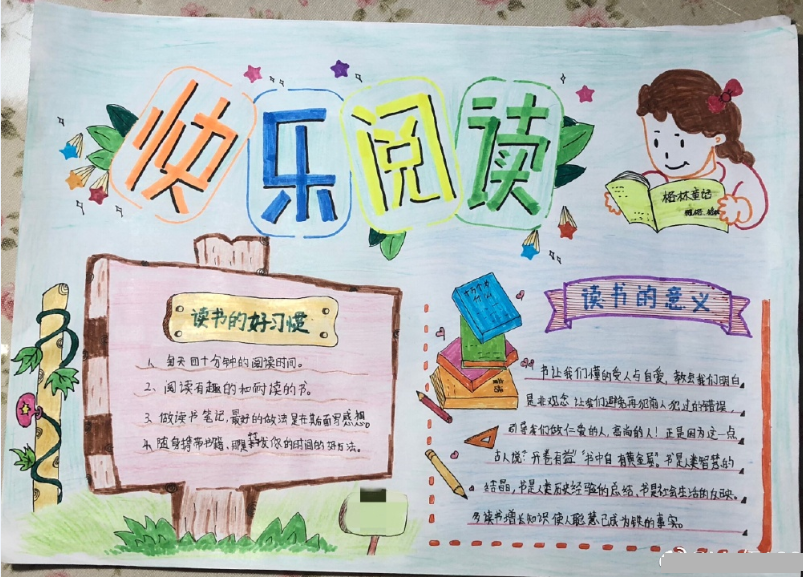 快乐阅读
格林童话
读书的好习惯
1、每天四十分钟的阅读时间。
2、阅读有趣的和耐读的书。
3、做读书笔记,最好的做法是在书后面写感想。
4、随身携带书籍,是 你的时间的好方法。
读书的意义
书让我们懂的爱人与自爱,教会我们明白
是非观念,让我们避免再犯前人犯过的错误,
引导我们做仁爱的人,高尚的人!正是因为这一点
古人说"开卷有益""书中自有黄金屋"。书是人类智慧的
结晶,书是人类历史经验的总结,书是社会生活的反映。
多读书增长知识使人聪慧已成为铁的事实。